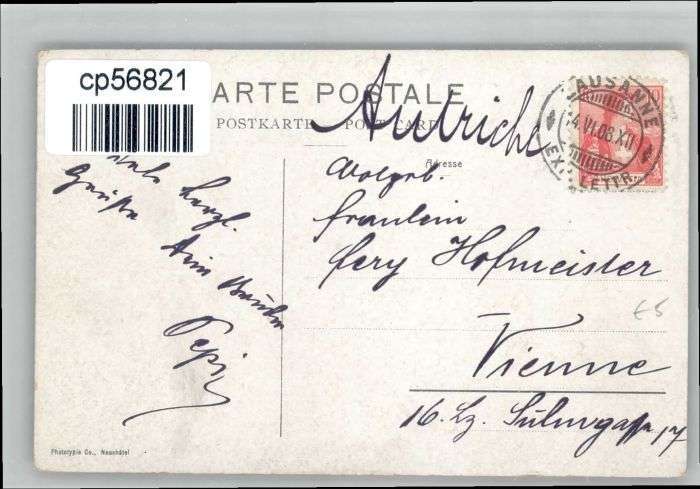 cp56821
CARTE POSTALE
POSTKARTE POST CARD
Autriche
LAUSANNE
EXP. LETTR.
Adresse
Wolgeb.
Fräulein
Fery Hofmeister
Vienne
16. Bz.
17
Viele herzl.
Grüße
Dein Bruder
Pepi
£5
Phototypie Co., Neuchâtel